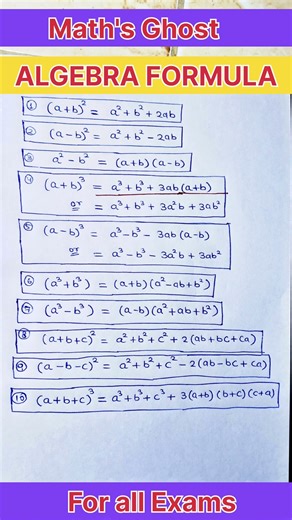 Math's Ghost
ALGEBRA FORMULA
① (a+b)² = a²+b²+2ab
② (a-b)² = a²+b²-2ab
③ a²-b² = (a+b)(a-b)
④ (a+b)³ = a³+b³+3ab(a+b)
or = a³+b³+3a²b+3ab²
⑤ (a-b)³ = a³-b³-3ab(a-b)
or = a³-b³-3a²b+3ab²
⑥ (a³+b³) = (a+b)(a²-ab+b²)
⑦ (a³-b³) = (a-b)(a²+ab+b²)
⑧ (a+b+c)² = a²+b²+c²+2(ab+bc+ca)
⑨ (a-b-c)² = a²+b²+c²-2(ab-bc+ca)
⑩ (a+b+c)³ = a³+b³+c³+3(a+b)(b+c)(c+a)
For all Exams